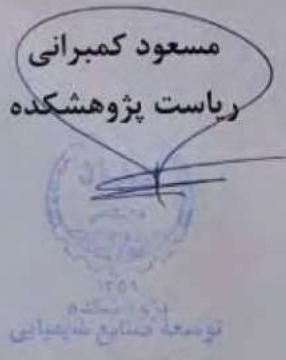 مسعود کمبرانی
ریاست پژوهشکده
۱۳۵۹
پژوهشکده
توسعه صنایع شیمیایی